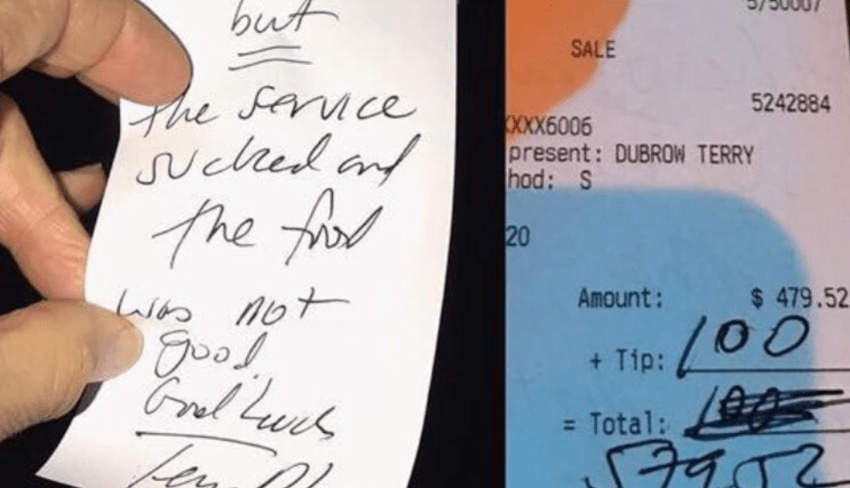 but
the service
sucked and
the food
was not
good.
Good Luck
5750007
SALE
5242884
XXXX6006
present: DUBROW TERRY
hod: S
20
Amount: $ 479.52
+ Tip: 100
= Total:
579.52